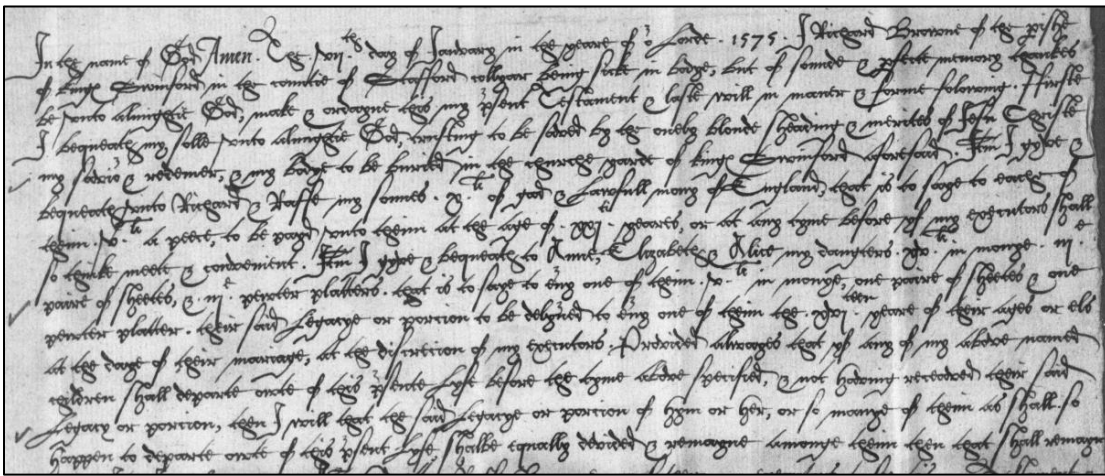 In the name of God Amen. The vii th day of January in the yeare of or Lorde. 1575. I Richard Browne of the pishe
of kings Swinford in the comitie of Stafford collyar being sicke in bodye, but of sounde & pfecte memory thankes
be unto almightie God, make & ordayne this my psent Testament & laste will in maner & forme folowing. Ffirste
I bequeath my solle unto almightie God, trusting to be saved by the onely bloude sheading & merites of Jesu Christe
my savior & redemer, & my bodye to be buried in the churche yarde of kings Swinford aforesaid. Itm I gyve &
bequeath unto Richard & Raffe my sonnes. x. li of good & Lawfull mony of England, that is to saye to eache of
theim. v. li a peece, to be payd unto theim at the age of. xxi. ti yeares, or at any tyme before yf my executors shall
so thinke meete & convenient. Itm I gyve & bequeath to Anne, Elizabeth & Alice my daughters. xv. li in monye. iii e
paire of sheetes, & .iii. e pewter platters. that is to saye to evy one of theim. v. li in monye, one paire of sheetes & one
pewter platter. their said Legacye or porcion to be delyved to evy one of theim the. xxi. teen yeare of their ages or els
at the daye of their mariage, at the discrecion of my executors. Provided alwayes that yf any of my above named
children shall departe owte of this psente Lyfe before the tyme above specified, & not having receaved their said
Legacy or porcion, then I will that the said Legacye or porcion of hym or her, or so manye of theim as shall so
happen to departe owte of this psent Lyfe, shalbe equally devided & remayne amonge theim then that shall remayn